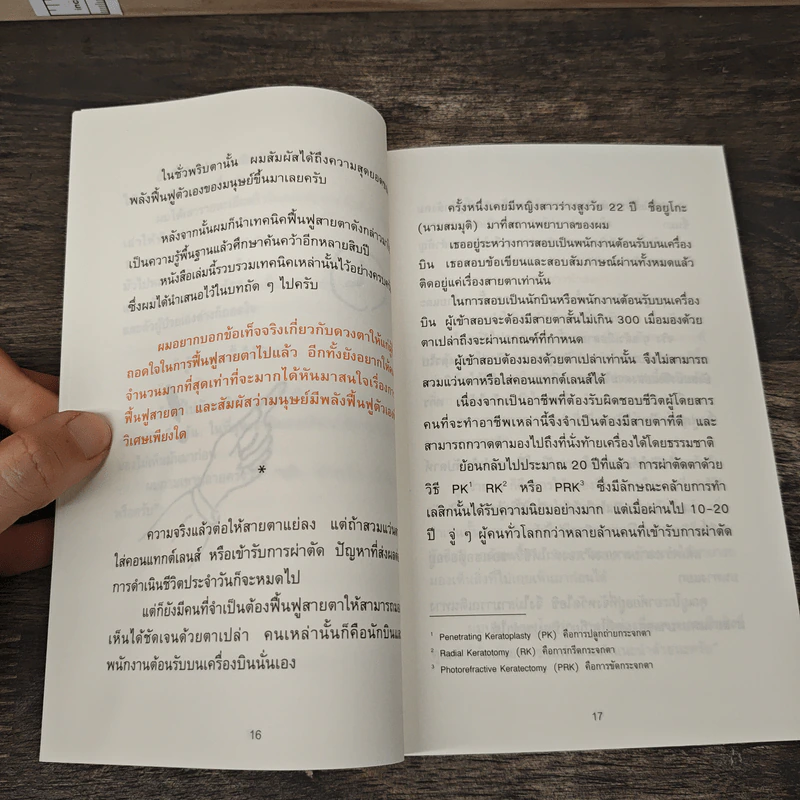 ในชั่วพริบตานั้น ผมสัมผัสได้ถึงความสุดยอด
พลังฟื้นฟูตัวเองของมนุษย์ขึ้นมาเลยครับ
หลังจากนั้นผมก็นำเทคนิคฟื้นฟูสายตาดังกล่าว
เป็นความรู้พื้นฐานแล้วศึกษาค้นคว้าอีกหลายสิบปี
หนังสือเล่มนี้รวบรวมเทคนิคเหล่านั้นไว้อย่าง
ซึ่งผมได้นำเสนอไว้ในบทถัด ๆ ไปครับ
ผมอยากบอกข้อเท็จจริงเกี่ยวกับดวงตาให้
ถอดใจในการฟื้นฟูสายตาไปแล้ว อีกทั้งยังอยากให้
จำนวนมากที่สุดเท่าที่จะมากได้หันมาสนใจเรื่อง
ฟื้นฟูสายตา และสัมผัสว่ามนุษย์มีพลังฟื้นฟูตัวเอง
วิเศษเพียงใด
*
ความจริงแล้วต่อให้สายตาแย่ลง แต่ถ้าสวมแว่น
ใส่คอนแทกต์เลนส์ หรือเข้ารับการผ่าตัด ปัญหาที่ส่งผล
การดำเนินชีวิตประจำวันก็จะหมดไป
แต่ก็ยังมีคนที่จำเป็นต้องฟื้นฟูสายตาให้สามารถ
เห็นได้ชัดเจนด้วยตาเปล่า คนเหล่านั้นก็คือนักบิน
พนักงานต้อนรับบนเครื่องบินนั่นเอง
16
ครั้งหนึ่งเคยมีหญิงสาวร่างสูงวัย 22 ปี ชื่อยูโกะ
(นามสมมุติ) มาที่สถานพยาบาลของผม
เธออยู่ระหว่างการสอบเป็นพนักงานต้อนรับบนเครื่อง
บิน เธอสอบข้อเขียนและสอบสัมภาษณ์ผ่านทั้งหมดแล้ว
ติดอยู่แค่เรื่องสายตาเท่านั้น
ในการสอบเป็นนักบินหรือพนักงานต้อนรับบนเครื่อง
บิน ผู้เข้าสอบจะต้องมีสายตาสั้นไม่เกิน 300 เมื่อมองด้วย
ตาเปล่าถึงจะผ่านเกณฑ์ที่กำหนด
ผู้เข้าสอบต้องมองด้วยตาเปล่าเท่านั้น จึงไม่สามารถ
สวมแว่นตาหรือใส่คอนแทกต์เลนส์ได้
เนื่องจากเป็นอาชีพที่ต้องรับผิดชอบชีวิตผู้โดยสาร
คนที่จะทำอาชีพเหล่านี้จึงจำเป็นต้องมีสายตาที่ดี และ
สามารถกวาดตามองไปถึงที่นั่งท้ายเครื่องได้โดยธรรมชาติ
ย้อนกลับไปประมาณ 20 ปีที่แล้ว การผ่าตัดตาด้วย
วิธี PK¹ RK² หรือ PRK³ ซึ่งมีลักษณะคล้ายการทำ
เลสิกนั้นได้รับความนิยมอย่างมาก แต่เมื่อผ่านไป 10-20
ปี จู่ ๆ ผู้คนทั่วโลกกว่าหลายล้านคนที่เข้ารับการผ่าตัด
¹ Penetrating Keratoplasty (PK) คือการปลูกถ่ายกระจกตา
² Radial Keratotomy (RK) คือการกรีดกระจกตา
³ Photorefractive Keratectomy (PRK) คือการขัดกระจกตา
17